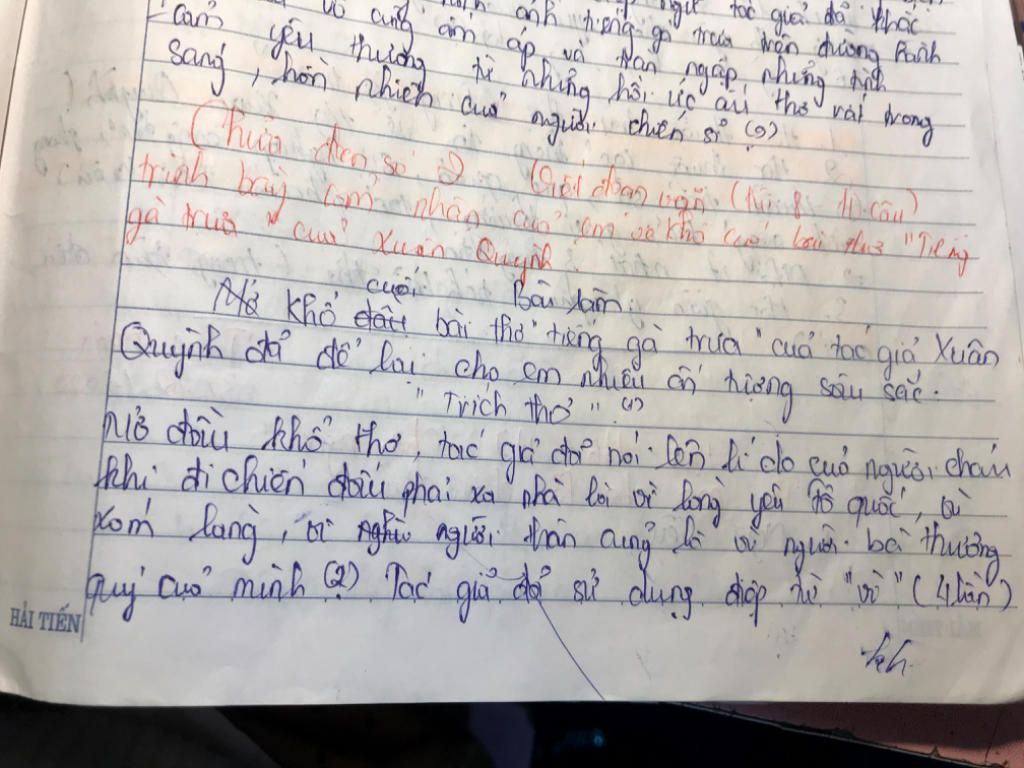 ngữ tác giả đã khác
vô cùng ấm áp và ảnh tiếng gà trưa trên đường hành
cảm yêu thương từ tràn ngập những tình
sáng, hồn nhiên của những hồi ức ấu thơ vát trong
người chiến sĩ (9)
(Chữa đến số 2 (Viết đoạn văn (từ 8 - 11 câu)
trình bày cảm nhận của em về khổ cuối bài thơ "Tiếng
gà trưa" của Xuân Quỳnh.
cuối Bài làm
Mở khổ đầu bài thơ "tiếng gà trưa" của tác giả Xuân
Quỳnh đã để lại cho em nhiều ấn tượng sâu sắc.
"Trích thơ" (1)
Mở đầu khổ thơ, tác giả đã nói lên lí do của người cháu
khi đi chiến đấu phải xa nhà là vì lòng yêu tổ quốc, vì
xóm làng, vì người thân cũng là vì người bà thương
quý của mình (2) Tác giả đã sử dụng điệp từ "vì" (4 lần)
HẢI TIẾN